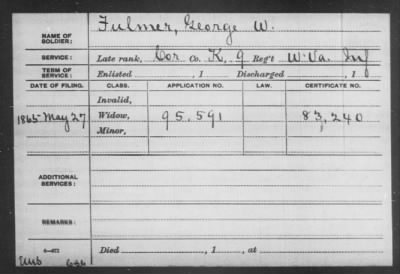 NAME OF SOLDIER: Fulmer, George W.
SERVICE: Late rank, Cor Co. K, 9 Reg't W. Va. Inf
TERM OF SERVICE: Enlisted , 1 Discharged , 1
DATE OF FILING. CLASS. APPLICATION NO. LAW. CERTIFICATE NO.
Invalid,
1865 May 27 Widow, 95.591 83,240
Minor,
ADDITIONAL SERVICES:
REMARKS:
Died , 1 , at